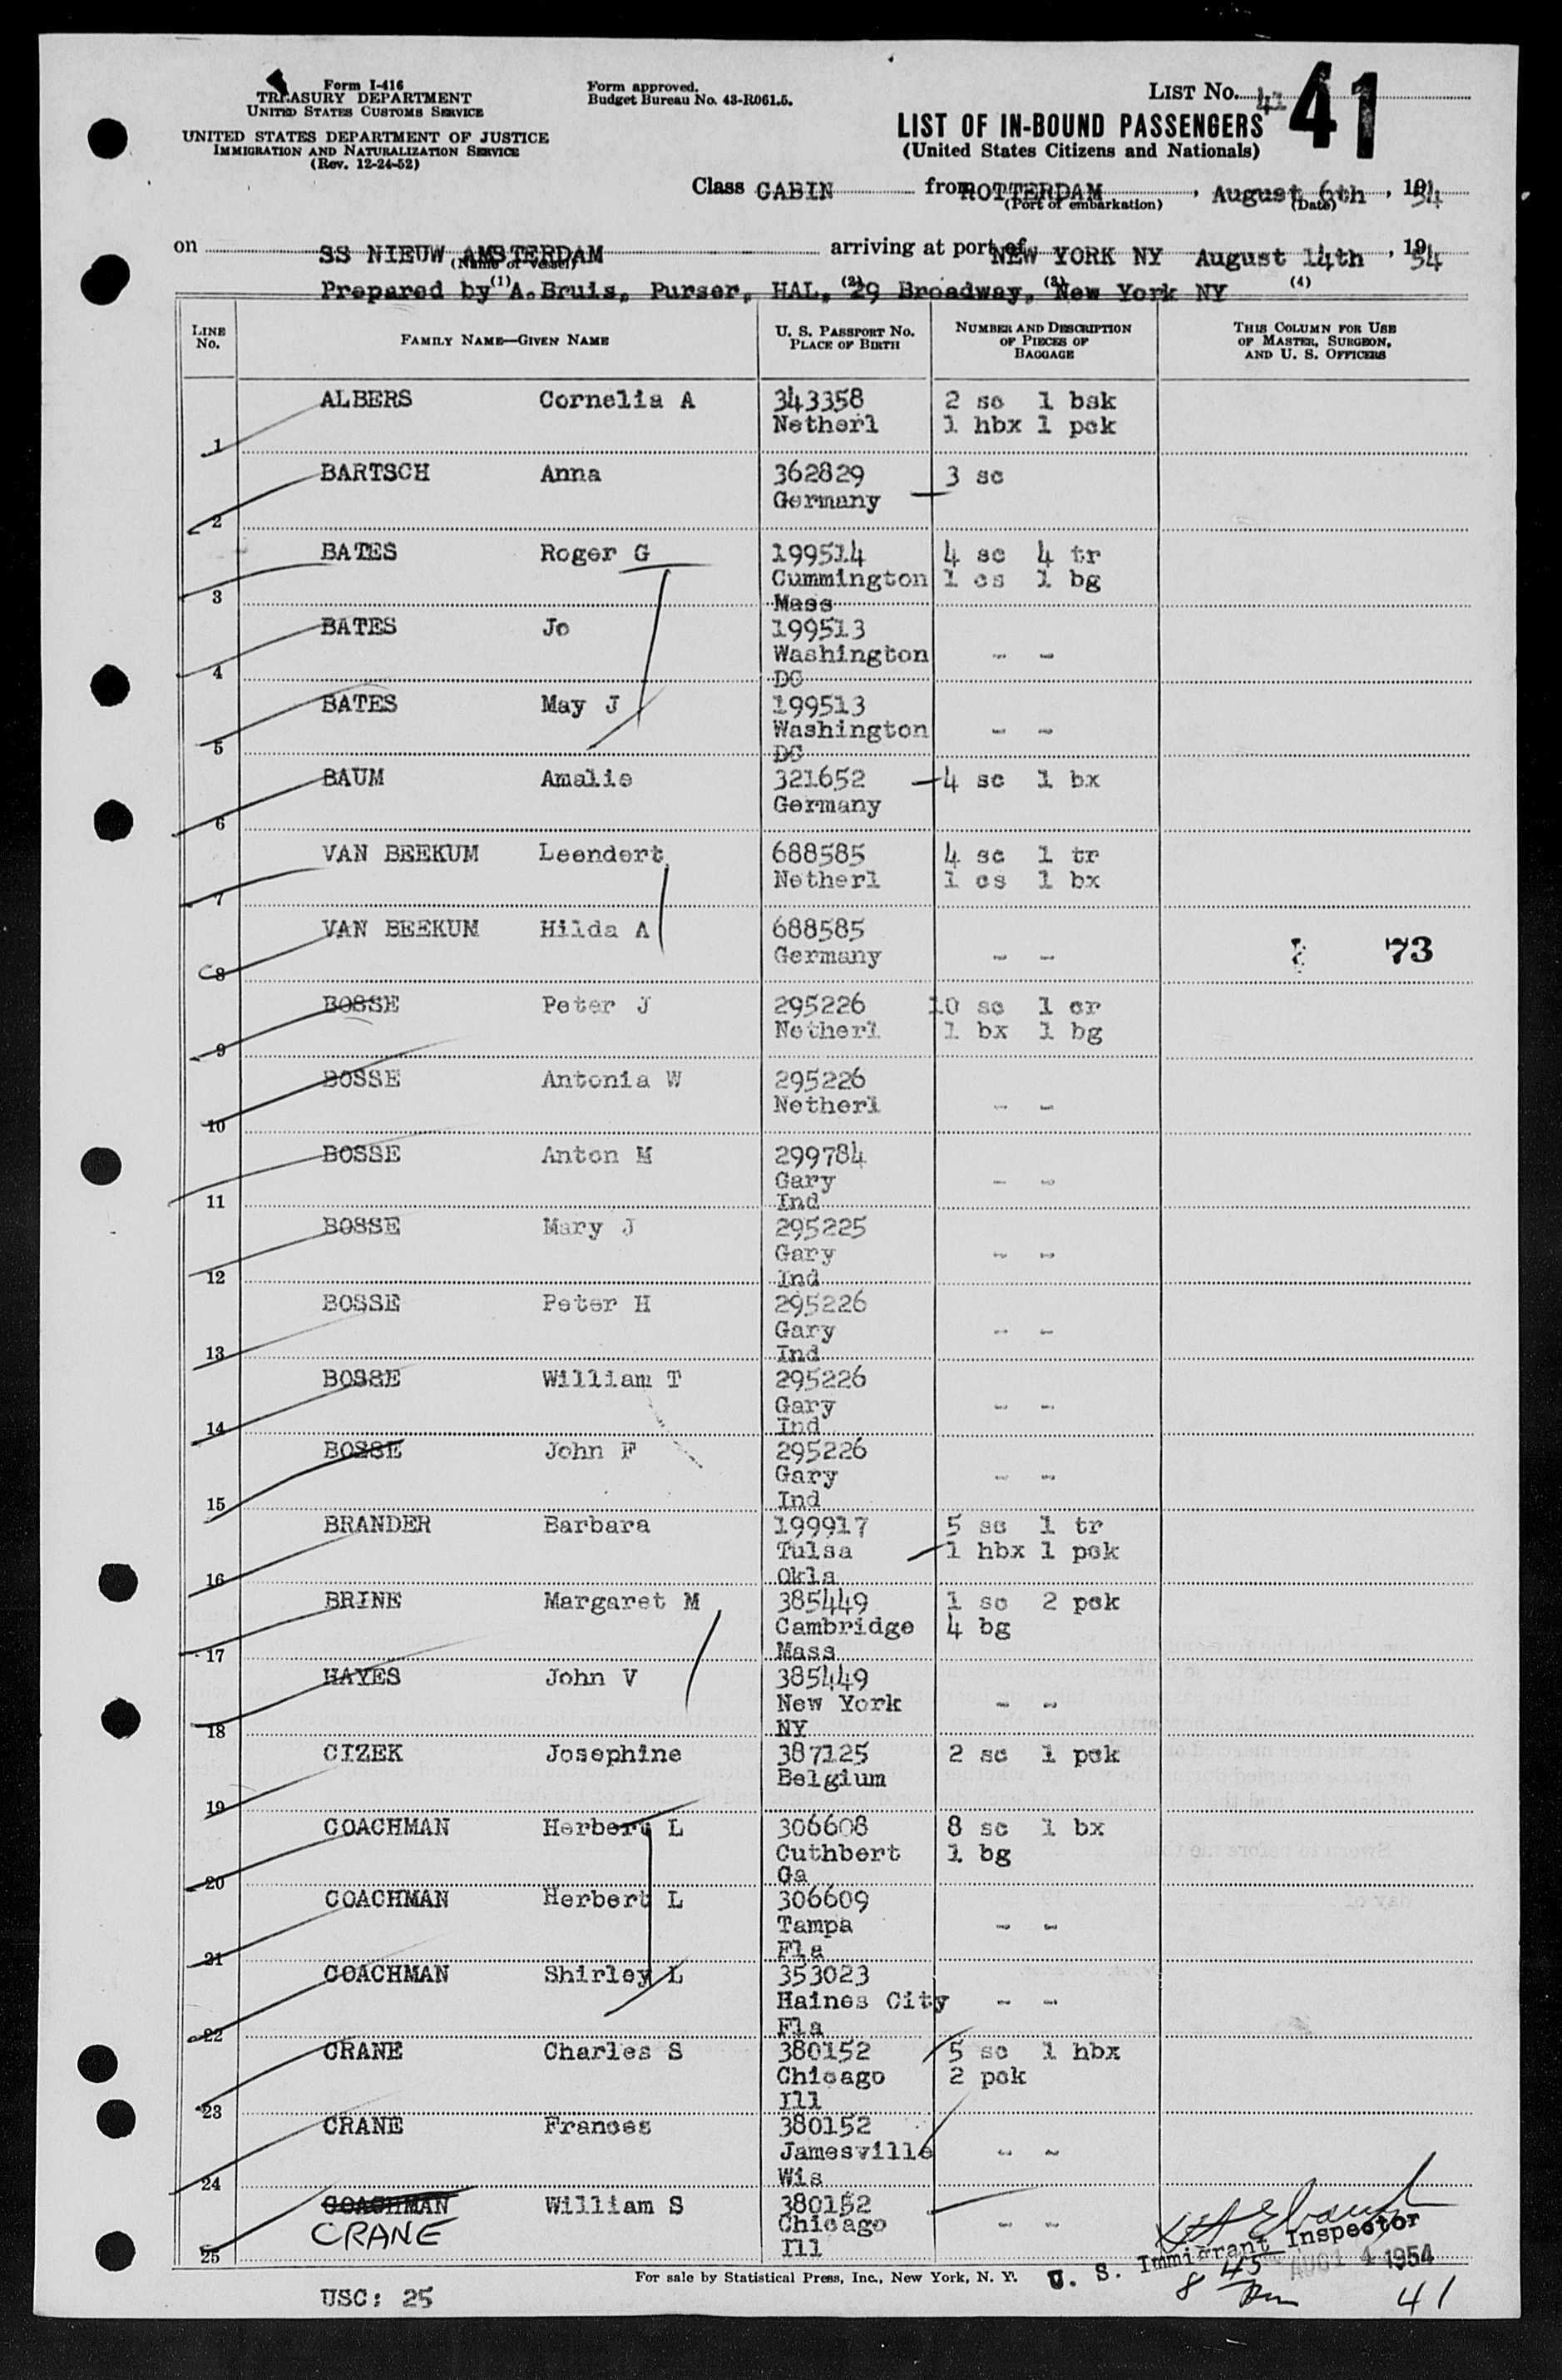 Form I-416
TREASURY DEPARTMENT
UNITED STATES CUSTOMS SERVICE
UNITED STATES DEPARTMENT OF JUSTICE
IMMIGRATION AND NATURALIZATION SERVICE
(Rev. 12-24-52)
Form approved.
Budget Bureau No. 43-R061.5.
LIST No. 41 41
LIST OF IN-BOUND PASSENGERS
(United States Citizens and Nationals)
Class CABIN from ROTTERDAM, August 6th, 1954
(Port of embarkation) (Date)
on SS NIEUW AMSTERDAM arriving at port of NEW YORK NY August 14th, 1954
(Name of vessel)
Prepared by (1) A.Bruis, Purser, HAL, (2) 29 Broadway, (3) New York NY (4)
LINE No. FAMILY NAME—GIVEN NAME U. S. PASSPORT No. PLACE OF BIRTH NUMBER AND DESCRIPTION OF PIECES OF BAGGAGE THIS COLUMN FOR USE OF MASTER, SURGEON, AND U. S. OFFICERS
1 ALBERS Cornelia A 343358 2 sc 1 bsk
Netherl 1 hbx 1 pck
2 BARTSCH Anna 362829 3 sc
Germany
3 BATES Roger G 199514 4 sc 4 tr
Cummington 1 cs 1 bg
Mass
4 BATES Jo 199513
Washington - -
DC
5 BATES May J 199513
Washington - -
DC
6 BAUM Amalie 321652 4 sc 1 bx
Germany
7 VAN BEEKUM Leendert 688585 4 sc 1 tr
Netherl 1 cs 1 bx
8 VAN BEEKUM Hilda A 688585 73
Germany - -
9 BOSSE Peter J 295226 10 sc 1 cr
Netherl 1 bx 1 bg
10 BOSSE Antonia W 295226
Netherl - -
11 BOSSE Anton M 299784
Gary - -
Ind
12 BOSSE Mary J 295225
Gary - -
Ind
13 BOSSE Peter H 295226
Gary - -
Ind
14 BOSSE William T 295226
Gary - -
Ind
15 BOSSE John F 295226
Gary - -
Ind
16 BRANDER Barbara 199917 5 sc 1 tr
Tulsa 1 hbx 1 pck
Okla
17 BRINE Margaret M 385449 1 sc 2 pck
Cambridge 4 bg
Mass
18 HAYES John V 385449
New York - -
NY
19 CIZEK Josephine 387125 2 sc 1 pck
Belgium
20 COACHMAN Herbert L 306608 8 sc 1 bx
Cuthbert 1 bg
Ga
21 COACHMAN Herbert L 306609
Tampa - -
Fla
22 COACHMAN Shirley L 353023
Haines City - -
Fla
23 CRANE Charles S 380152 5 sc 1 hbx
Chicago 2 pck
Ill
24 CRANE Frances 380152
Jamesville - -
Wis
25 COACHMAN William S 380152
CRANE Chicago - -
Ill
U. S. Immigrant Inspector
AUG 14 1954
8 45 Pm
41
For sale by Statistical Press, Inc., New York, N. Y.
USC: 25